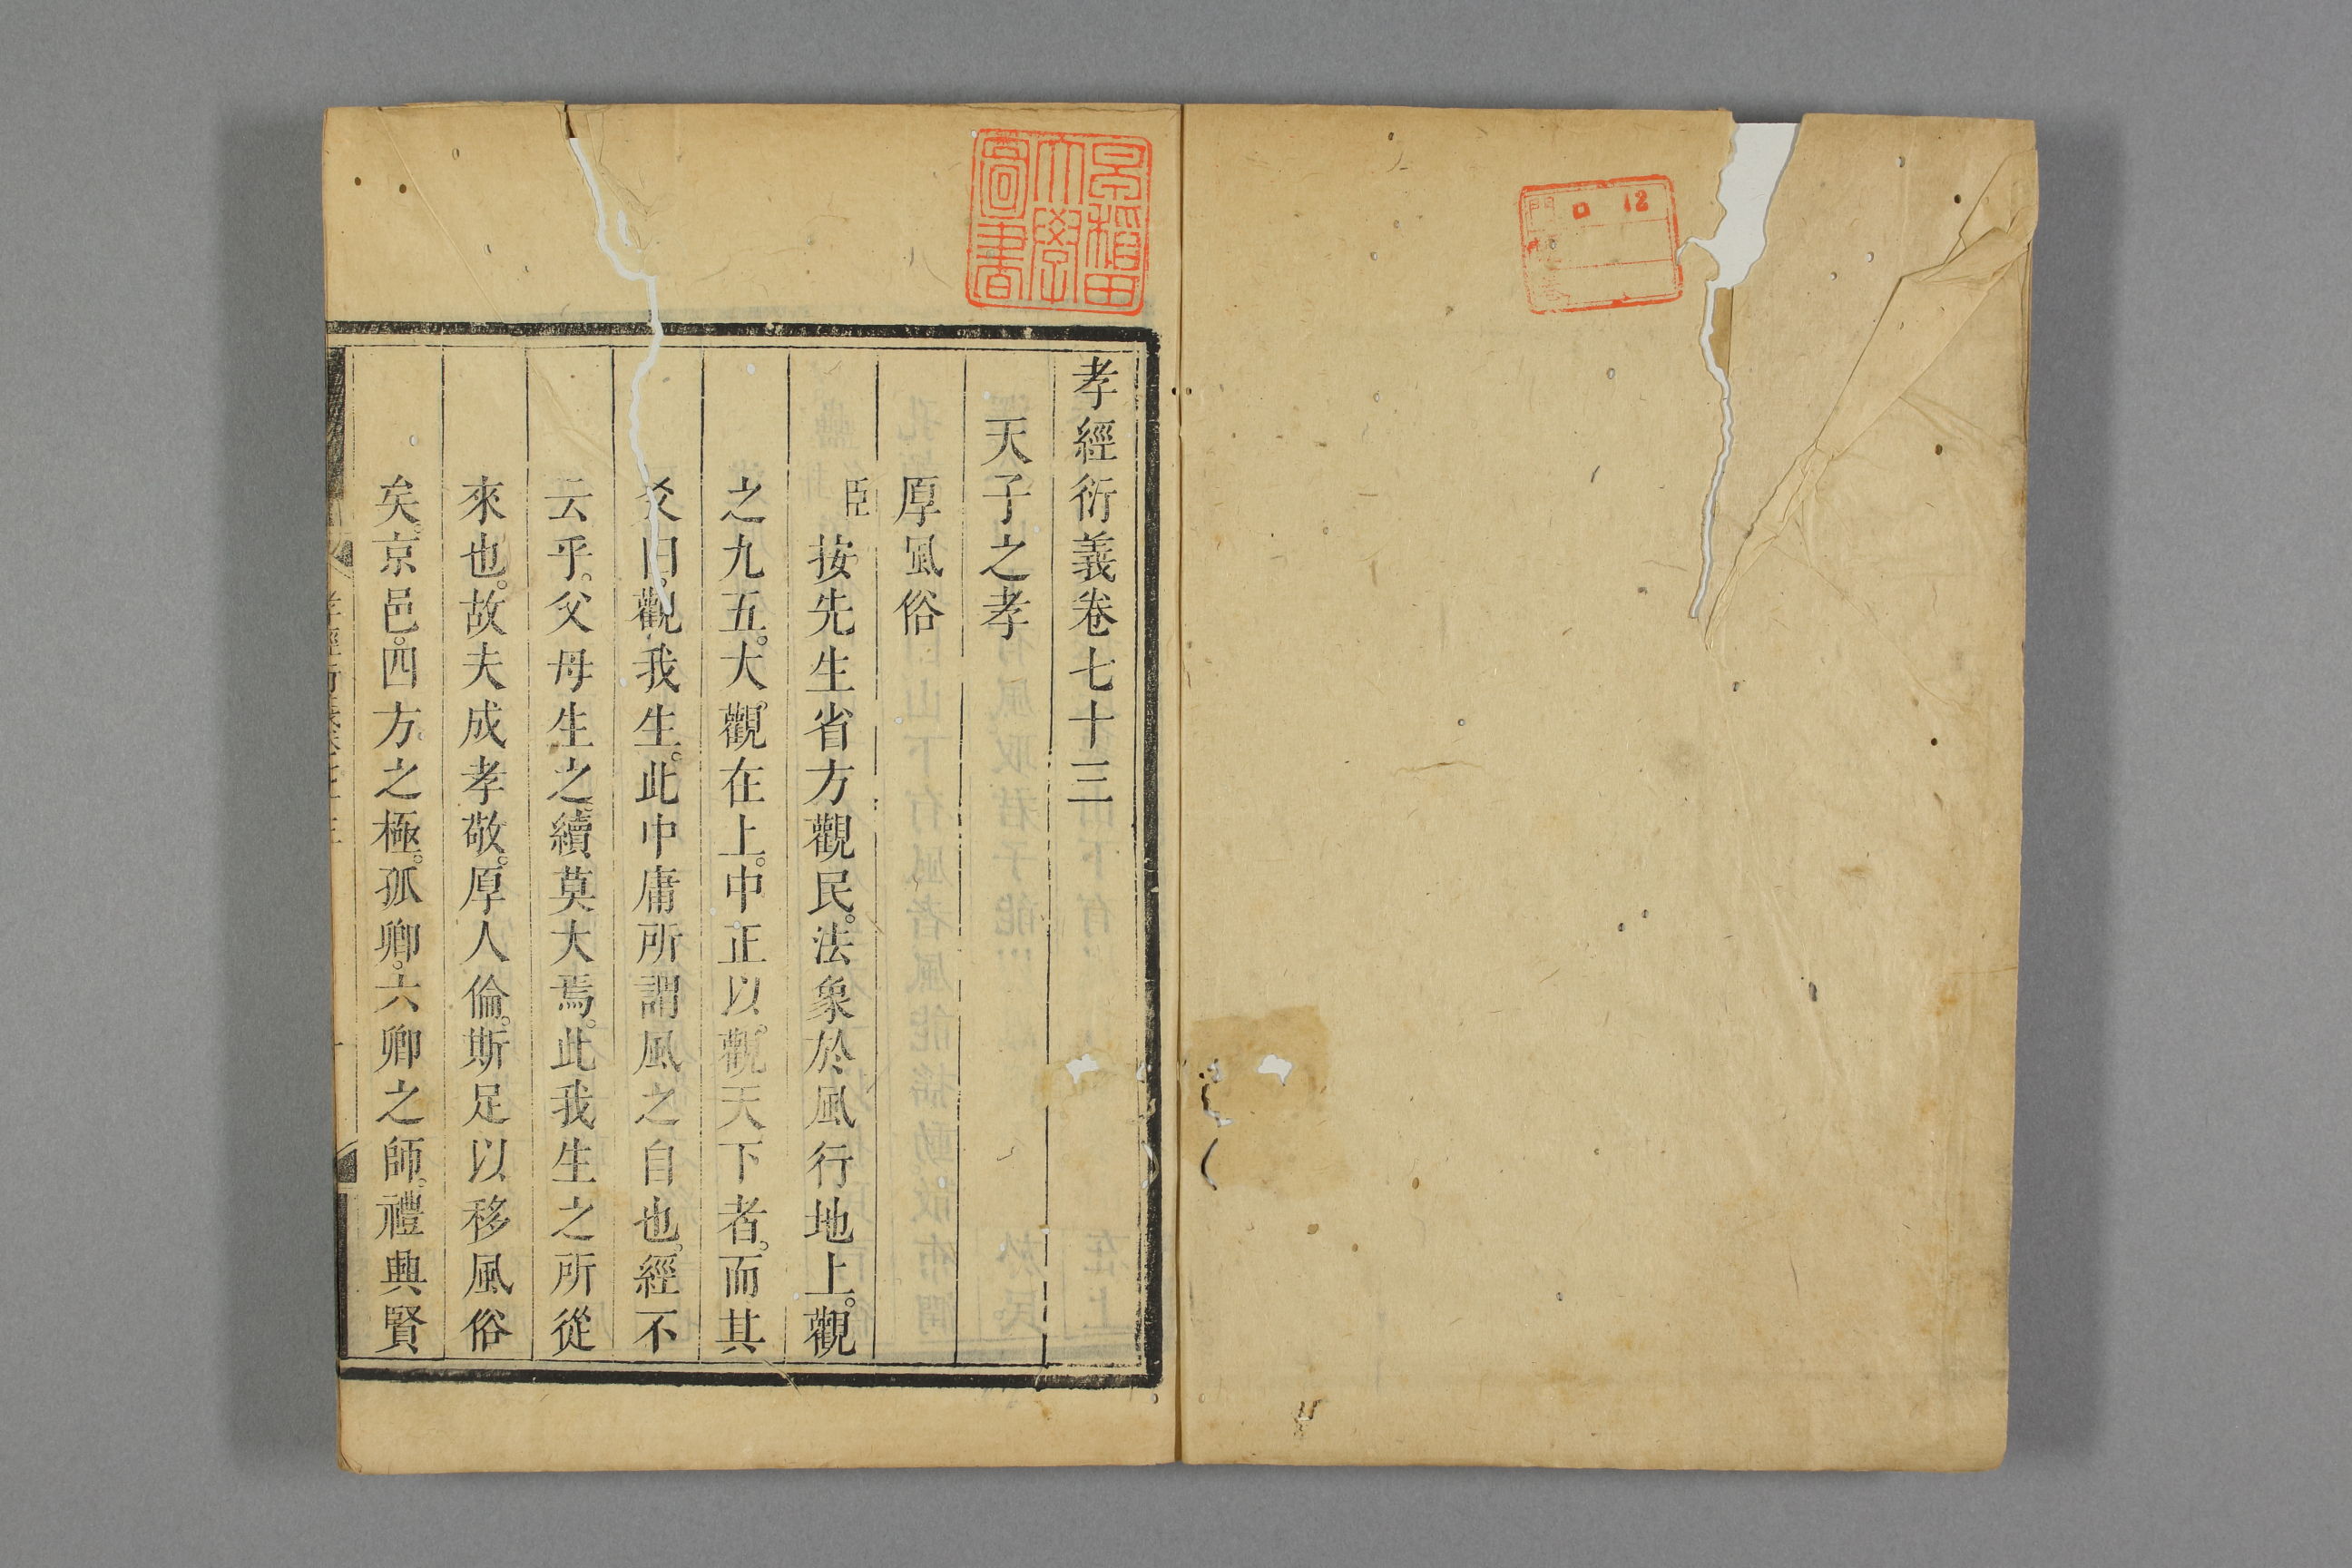 門 ロ 12
早稲田大學圖書
孝經衍義卷七十三
天子之孝
厚風俗
臣按先生省方觀民。法象於風行地上。觀
之九五。大觀在上。中正以觀天下者。而其
爻曰。觀我生。此中庸所謂風之自也。經不
云乎。父母生之。續莫大焉。此我生之所從
來也。故夫成孝敬。厚人倫。斯足以移風俗
矣。京邑。四方之極。孤卿。六卿之師。禮興賢